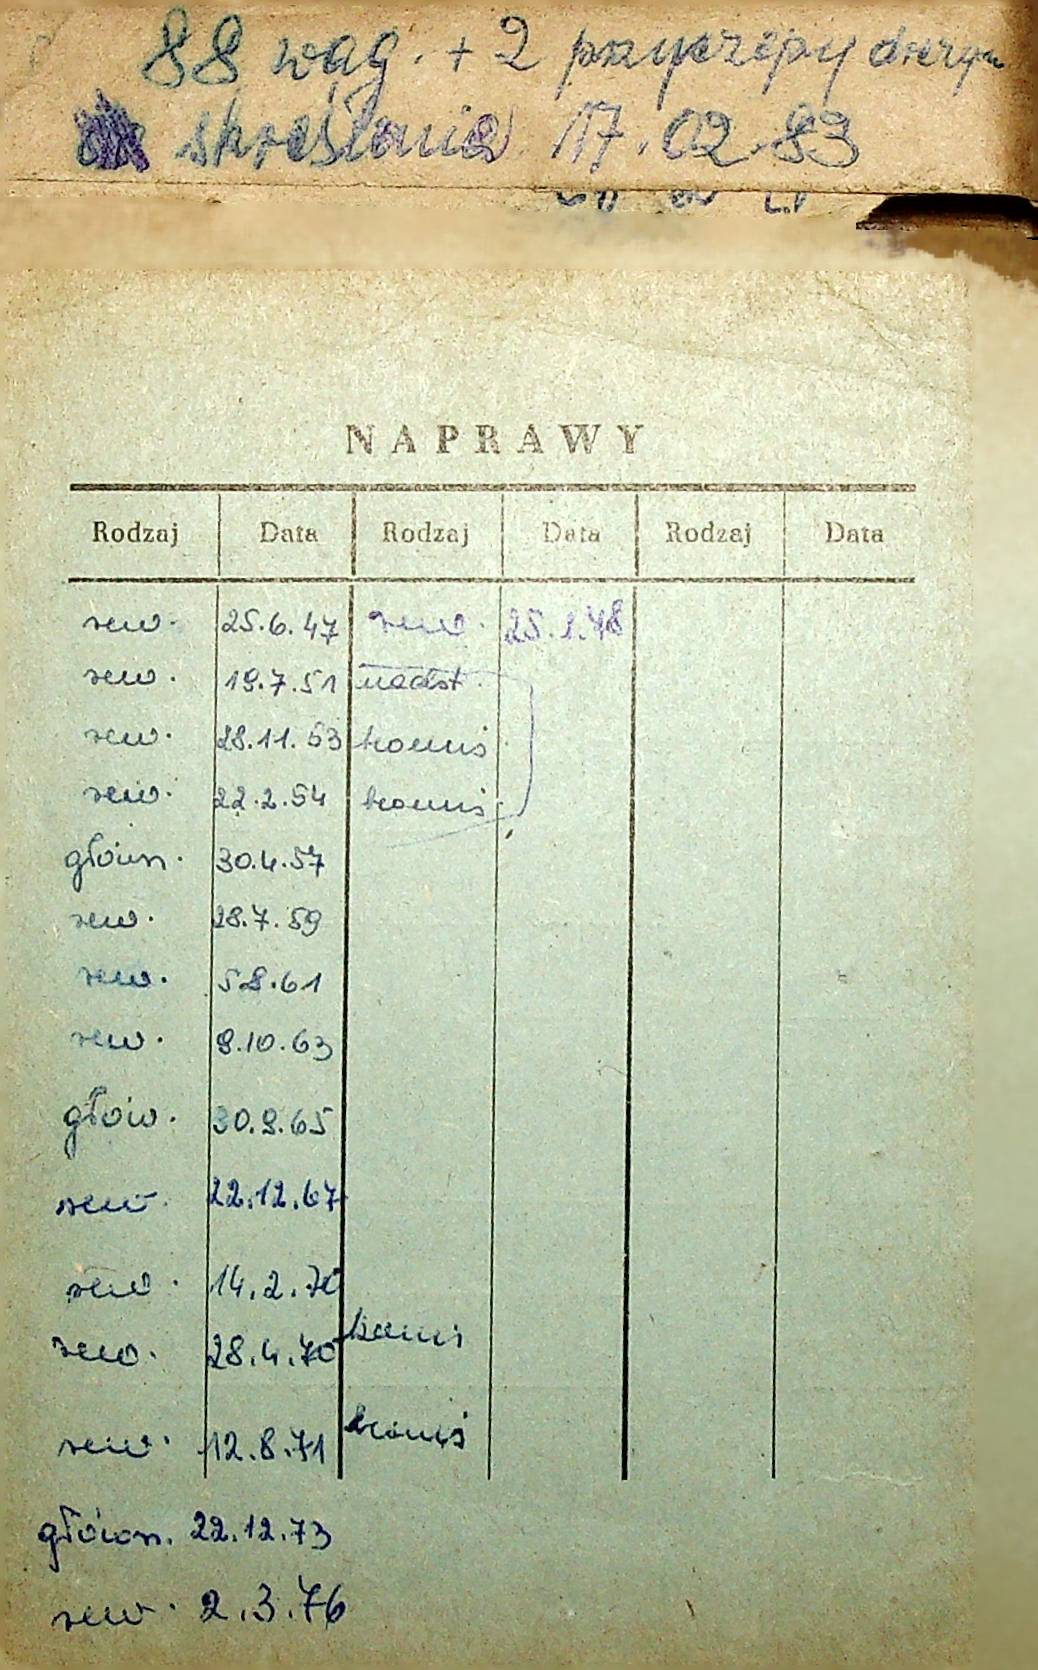 88 wag. + 2 przyczepy drezyn
skreślenia 17.02.83
NAPRAWY
Rodzaj Data Rodzaj Data Rodzaj Data
rew. 25.6.47 rew. 25.2.48
rew. 19.7.51 nadst.
rew. 28.11.53
rew. 22.2.54
główn. 30.4.57
rew. 28.7.59
rew. 5 8.61
rew. 9.10.63
głów. 30.9.65
rew. 22.12.67
rew. 14.2.70
rew. 28.4.70
rew. 12.8.71
główn. 22.12.73
rew. 2.3.76